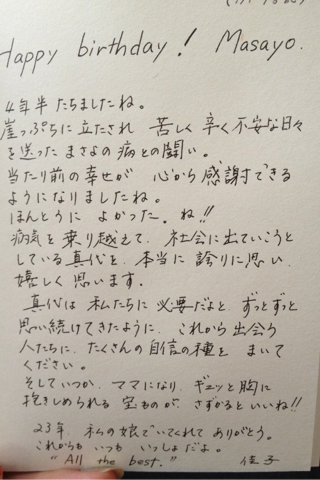 Happy birthday! Masayo.
4年半たちましたね。
崖っぷちに立たされ 苦しく辛く不安な日々
を送った まさよの病との闘い。
当たり前の幸せが 心から感謝できる
ようになりましたね。
ほんとうに よかった。ね!!
病気を乗り越えて、社会に出ていこうと
している真代を、本当に誇りに思い、
嬉しく思います。
真代は 私たちに必要だよと、ずっとずっと
思い続けてきたように、これから出会う
人たちに、たくさんの自信の種を まいて
ください。
そしていつか、ママになり、ギュッと胸に
抱きしめられる宝ものが、さずかるといいね!!
23年、私の娘でいてくれて ありがとう。
これからも いつも いっしょだよ。
"All the best." 佳子